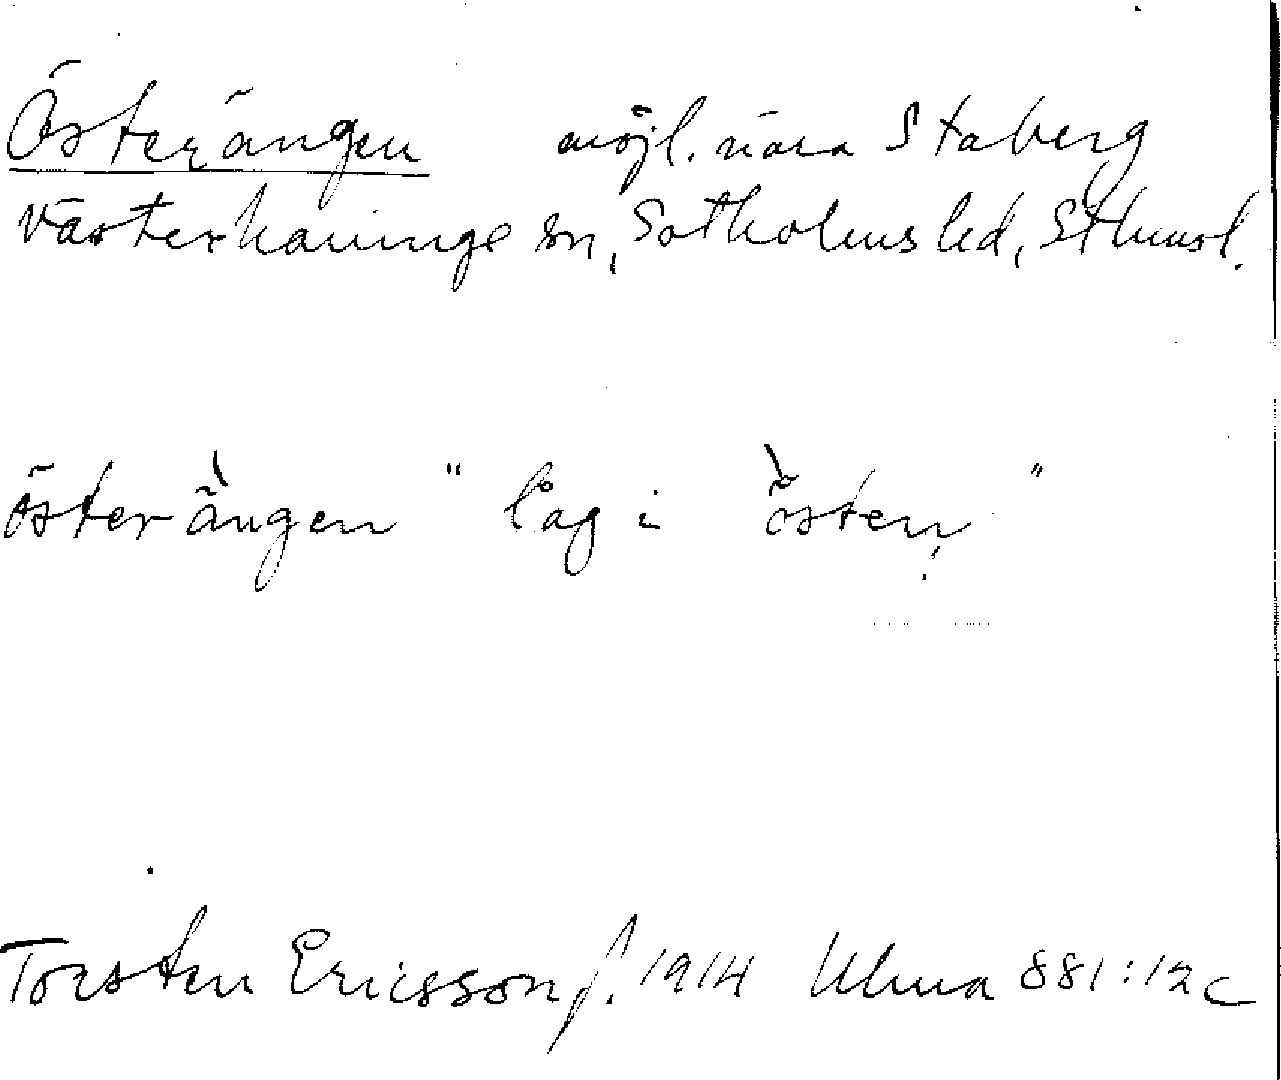 Österängen möjl. nära Staberg
Västerhaninge sn, Sotholms hd, Sthmsl.
österängen " låg i östen "
Torsten Ericsson f. 1914 Ulma 881:12c